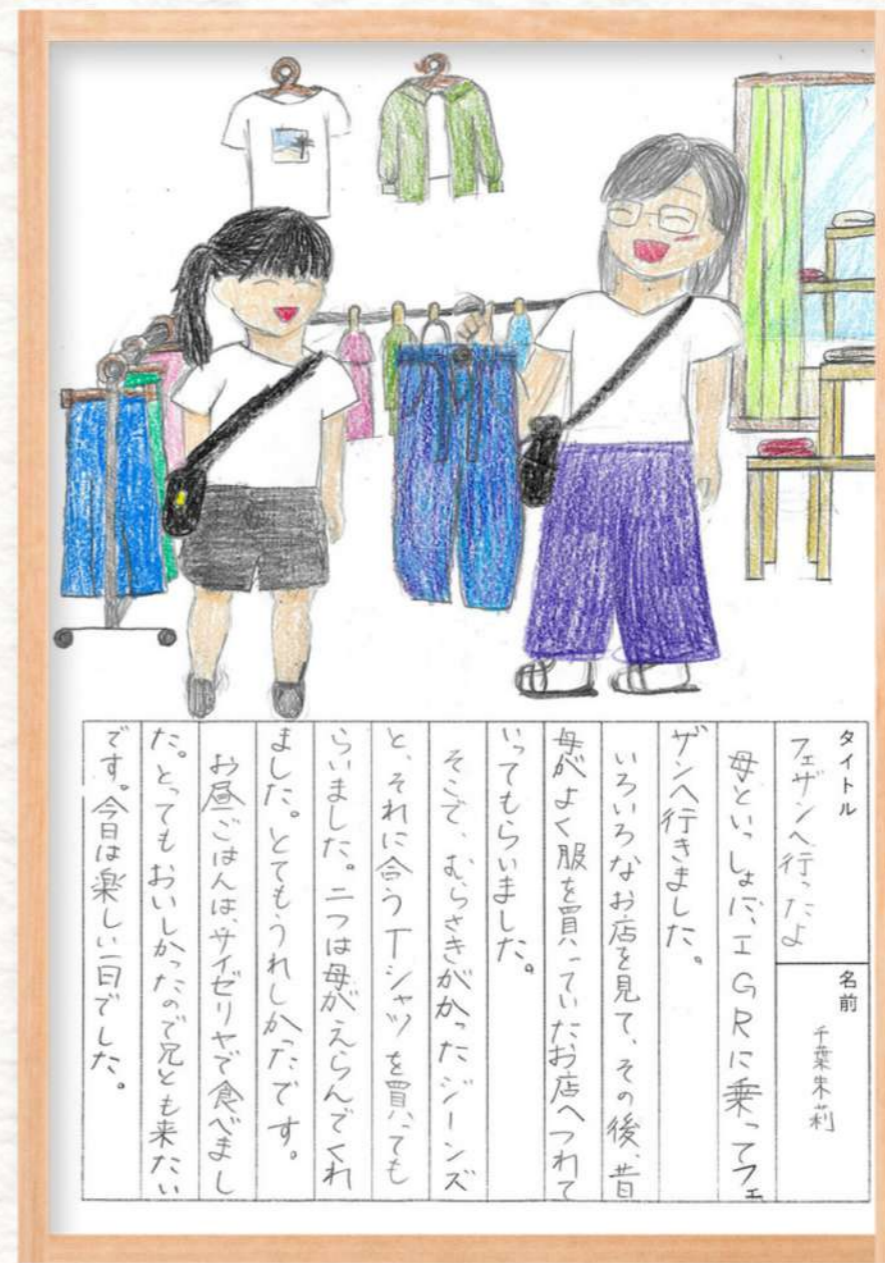 タイトル
フェザンへ行ったよ
名前
千葉朱莉
母といっしょに、IGRに乗ってフェ
ザンへ行きました。
いろいろなお店を見て、その後、昔
母がよく服を買っていたお店へつれて
いってもらいました。
そこで、むらさきがかったジーンズ
と、それに合うTシャツを買っても
らいました。二つは母がえらんでくれ
ました。とてもうれしかったです。
お昼ごはんは、サイゼリヤで食べまし
た。とってもおいしかったので兄とも来たい
です。今日は楽しい一日でした。